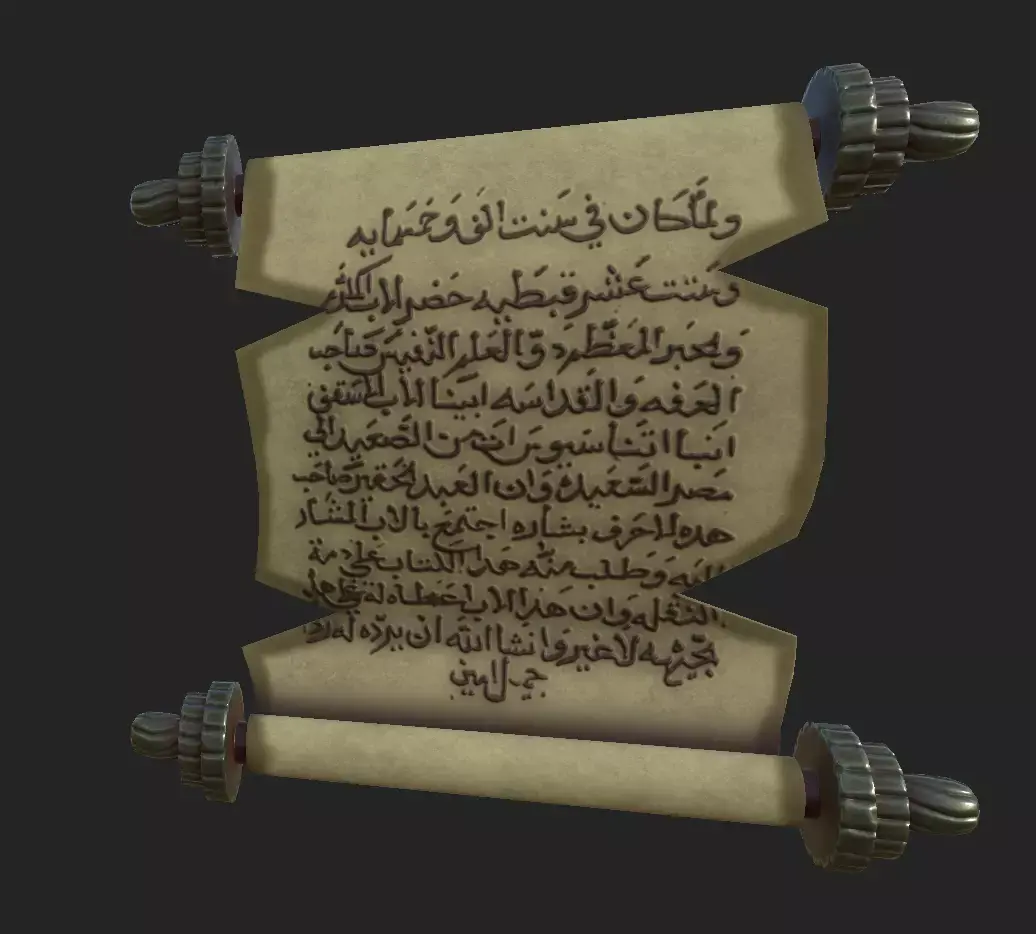 ولما كان في سنت الف وخمسمايه
وستت عشر قبطيه حضر الاب المكرم
والحبر المعظم والعالم النفيس صاحب
العرفه والقداسه ابينا الاب الاسقف
انبا اتناسيوس من الصعيد الي
مصر السعيده وان العبد الحقير صاحب
هده الاحرف بشاره اجتمع بالاب المشار
اليه وطلب منه هدا الكتاب علي دمة
النقل وان هذا الاب اعطاه له علي
لا غير وانشا الله ان يرده له
امين